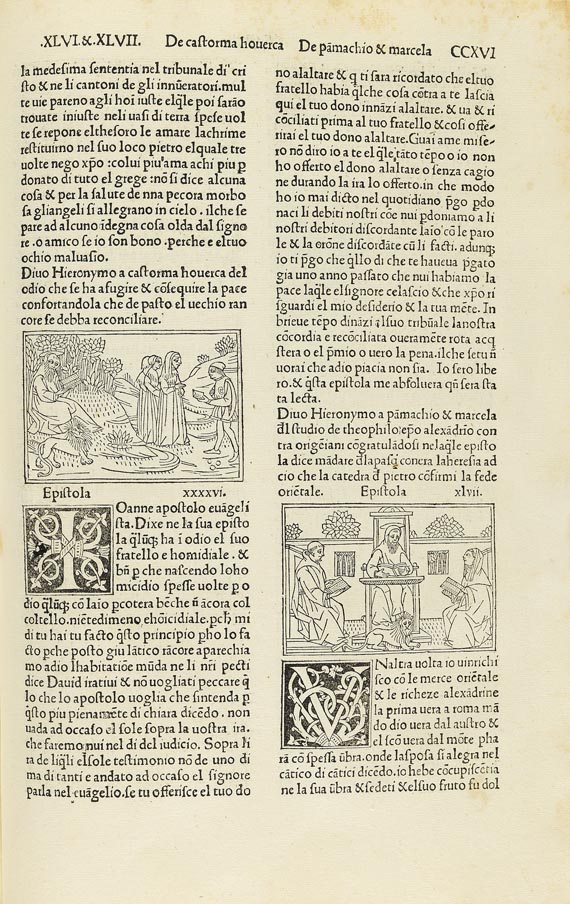 .XLVI.&.XLVII. De castorma houerca De pãmachio & marcela CCXVI
la medesima sententia nel tribunale di cri
sto & ne li cantoni de gli innũeratori.mul
te uie pareno agli hoi iuste elq̃le poi sarão
trouate iniuste neli uasi di terra spese uol
te se repone elthesoro le amare lachrime
restituirno nel suo loco pietro elquale tre
uolte nego xp̃o :colui piu ama achi piu p
donato di tuto el grege :nõ si dice alcuna
cosa & per la salute de nna pecora morbo
sa gliangeli si allegrano in cielo . ilche se
pare ad alcuno ĩdegna cosa olda dal signo
re .o amico se io son bono .perche e eltuo
ochio maluasio.
Diuo Hieronymo a castorma houerca del
odio che se ha afugire & cõsequire la pace
confortandola che de pasto el uechio ran
core se debba reconciliare.
Epistola xxxxvi.
IOanne apostolo euãgeli
sta. Dixe ne la sua episto
la q̃lũq̃ ha i odio el suo
fratello e homidiale . &
bñ p che nascendo loho
micidio spesse uolte p o
dio q̃lũq̃ cõ laio pcotera bẽche ñ ãcora col
coltello. niẽtedimeno ehõicidiale. pch̃ mi
di tu hai tu facto q̃sto principio pho lo fa
cto pche posto giu lãtico rãcore aparechia
mo adio lhabitatiõe mũda ne li nr̃i pecti
dice Dauid iratiui & nõ uogliati peccare q̃
lo che lo apostolo uoglia che sintenda p
q̃sto piu pienamẽte di chiara dicẽdo . non
uada ad occaso el sole sopra la uostra ira.
che faremo nui nel di del iudicio. Sopra li
ra de liq̃li elsole testimonio nõ de uno di
ma di tanti e andato ad occaso el signore
parla nel euãgelio. se tu offerisce el tuo do
no alaltare & q ti sara ricordato che el tuo
fratello habia q̃lche cosa cõtra a te lascia
qui el tuo dono innãzi alaltare. & ua & ri
cõciliati prima al tuo fratello & cosi offe
rirai el tuo dono alaltare. Guai ame mise
ro nõ diro io a te el q̃le tãto tẽpo o io non
ho offerto el dono alaltare o senza cagio
ne durando la ira lo offerto. in che modo
ho io mai dicto nel quotidiano p̃go pdo
naci li debiti nostri cõe nui pdoniamo a li
nostri debitori discordante laio cõ le paro
le & la orõne discordãte cũ li facti. adunq̃
io ti p̃go che q̃llo di che te haueua pgato
gia uno anno passato che nui habiamo la
pace laq̃le elsignore celascio & che xp̃o ri
sguardi el mio desiderio & la tua mẽte. In
brieue tẽpo dinãzi alsuo tribũale la nostra
cõcordia e recõciliata oueramẽte rota acq
stera o el p̃mio o uero la pena. ilche se tu ñ
uorai che adio piacia non sia. Io sero libe
ro. & q̃sta epistola me absoluera qñ sera sta
ta lecta.
Diuo Hieronymo a pãmachio & marcela
dl studio de theophilo epo alexãdrio con
tra origẽiani cõgratulãdosi ne laq̃le episto
la dice mãdare d la pasq̃ contra la heresia ad
cio che la catedra d pietro cõfirmi la fede
oriẽtale. Epistola xlvii.
VNaltra uolta io uinrichi
sco cõ le merce oriẽtale
& le richeze alexãdrine
la prima uera a roma mã
do dio uera dal austro &
el scõ uera dal mõte pha
rã cõ spessa ũbra. onde la sposa si alegra nel
cãtico di cãtici dicẽdo. io hebe cõcupiscẽtia
ne la sua ũbra & sedeti & elsuo fruto fu dol